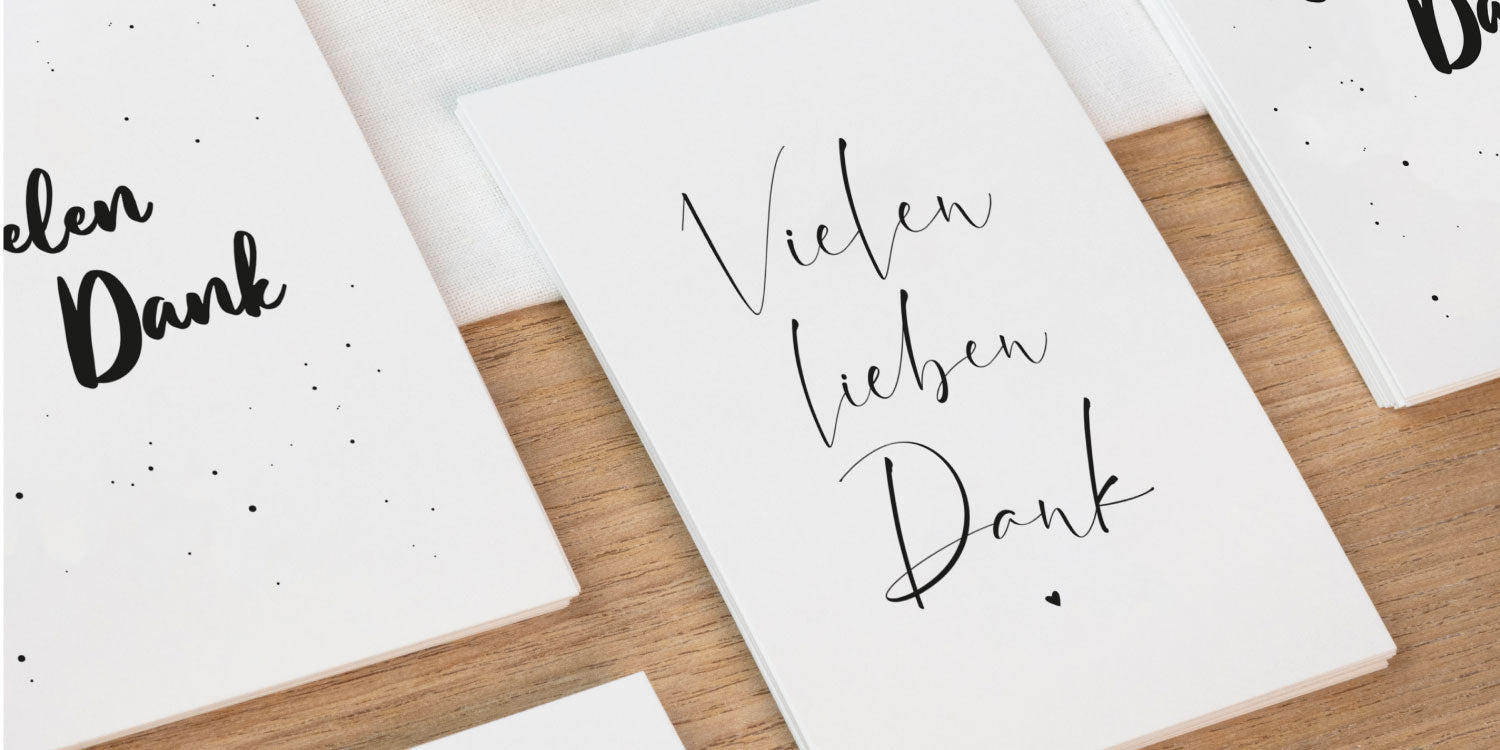 elen
Dank
Vielen
Lieben
Dank
Da